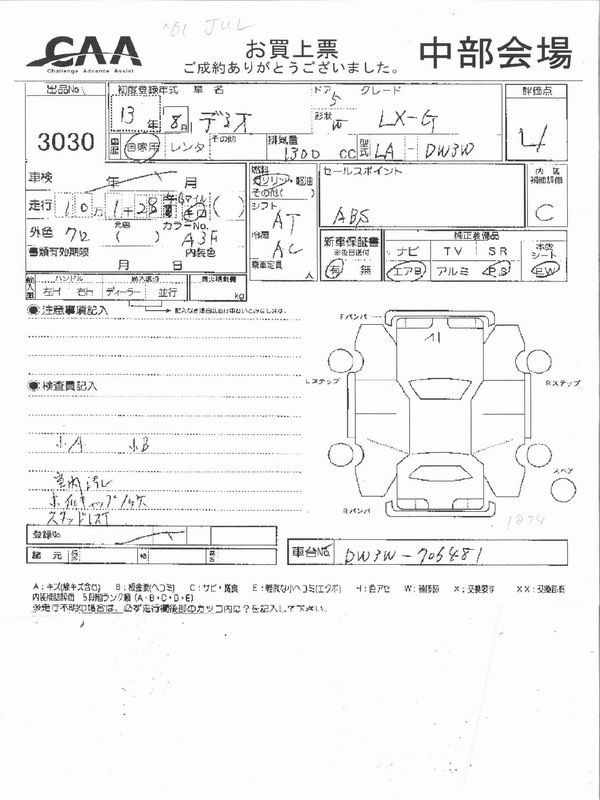 '01 JUL
CAA
Challenge Advance Assist
お買上票
ご成約ありがとうございました。
中部会場
出品No.
3030
初度登録年式 車名
13年 8月 デミオ
ドア 5 グレード
形状 W LX-G
評価点
4
歴 自家用 レンタ その他
排気量 1300 CC 型式 LA - DW3W
車検 年 月
走行 10万 1千 28 マイル キロ ( )
外色 クロ 元色 ( ) カラーNo. A3F
書類有効期限 月 日 内装色
燃料 ガソリン・軽油
その他( )
シフト AT
冷房 AC
乗車定員 人
セールスポイント
ABS
内装補助評価
C
新車保証書
※後日送付
有 無
純正装備品
ナビ TV SR 本皮シート
エアB アルミ PS PW
輸入車 ハンドル 左H 右H 輸入区分 ディーラー 並行 kg
●注意事項記入
●検査員記入
小A 小B
室内汚レ
ホイルキャップノミケ
スタッドレスT
Fバンパ
A1
Lステップ
Rステップ
スペア
Rバンパ
1874
登録No.
諸元 長 幅 高
車台No. DW3W-706481
A:キズ(線キズ含む) B:板金要(ヘコミ) C:サビ・腐食 E:軽微な小ヘコミ(エクボ) H:色アセ W:補修跡 X:交換要す XX:交換済み
内装補助評価 5段階ランク順(A・B・C・D・E)
※走行不明の場合は、必ず走行欄後部のカッコ内に?を記入して下さい。